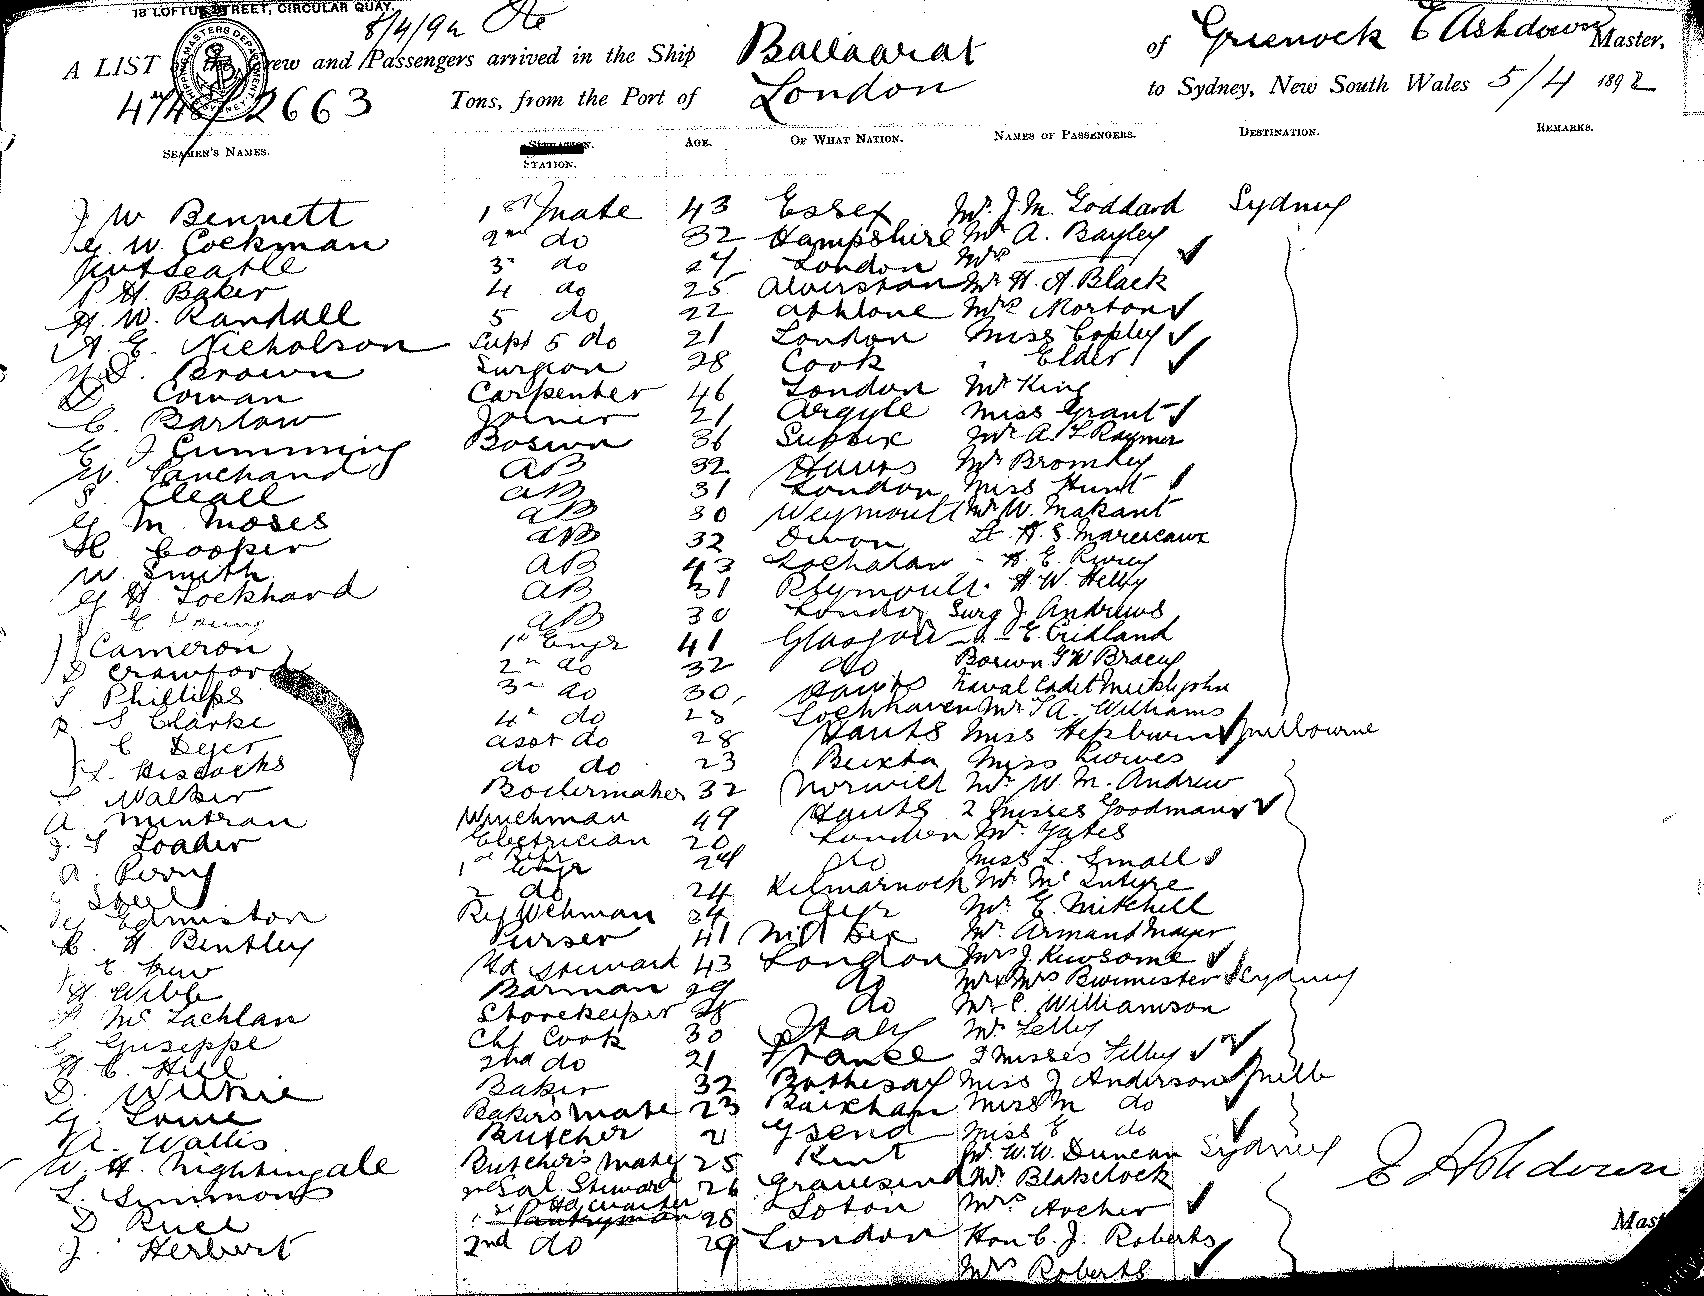 18 LOFTUS STREET, CIRCULAR QUAY.
8/4/92
A LIST of the Crew and Passengers arrived in the Ship Ballaarat of Greenock E Ashdown Master,
2663 Tons, from the Port of London to Sydney, New South Wales 5/4 1892
SEAMEN'S NAMES. STATION. AGE. OF WHAT NATION. NAMES OF PASSENGERS. DESTINATION. REMARKS.
J W Bennett 1st Mate 43 Essex Mr. J. M. Goddard Sydney
G. W. Cockman 2nd do 32 Hampshire Mr A. Bayley
3rd do 27 London Mrs
P. H. Baker 4 do 25 Mr H. A. Black
H. W. Randall 5 do 22 Athlone Mrs Morton
A. E. Nicholson Supt 5 do 21 London Miss Copley
Brown Surgeon 28 Cook " Elder
D. Cowan Carpenter 46 London Mr King
C. Barlow Joiner 21 Argyle Miss Grant
E. J Cumming Boswn 36 Sussex Mr A. L Raymer
W. Panchand AB 32 Hants Mr Bromley
S. Cleall AB 31 London Miss Hunt
G M Moses AB 30 Weymouth Mr W. Makant
H. Cooper AB 32 Devon Lt. H. S.
W. Smith AB 43 - H. E.
G H Lockhard AB 31 Plymouth - H. W. Helby
E Young AB 30 London Surg J. Andrews
Cameron 1st Engr 41 Glasgow - E Cridland
D Crawford 2nd do 32 do Boswn G W Bracey
S Phillips 3rd do 30 Hants Naval Cadet Meiklejohn
R S Clarke 4th do 25 Lochhaven Mr T A. Williams
C Dyer asst do 28 Hants Miss Hepburn Melbourne
L. Hiscocks do do 23 Miss Lowes
L. Walker Boilermaker 32 Norwich Mr W. M. Andrew
A. Mintran Winchman 49 Hants 2 Misses Goodman
J. S Loader Electrician 20 London Mr Yates
A. Perry 1st Refr Engr 24 do Miss L. Small
Steel 2 do 24 Kilmarnock Mr McIntyre
Edmiston Ref Wchman 34 Ayr Mr E. Mitchell
C. H Bentley Purser 41 Mid sex Mr. Armand Mayer
E. Grew Hd Steward 43 London Mrs J. Newsome
H Webb Barman 29 do Mr & Mrs Burmester Sydney
McLachlan Storekeeper 28 do Mr C. Williamson
C Guseppe Chf Cook 30 Italy Mr Lelly
H C. Hill 2nd do 21 France 2 Misses Lilley
D. Wilkie Baker 32 Rothesay Miss J Anderson Melb
G. Lowe Baker's mate 23 Brixham Miss M do
A. Wallis Butcher 21 G'send Miss E do
W. H. Nightingale Butcher's mate 25 Kent Mr. W. W. Duncan Sydney E Ashdown
L. Simmons Sal. Steward 26 Gravesend Mr. Blakelock
D Ruel Pantryman 28 Loton Mrs Archer Mast
J. Herbert 2nd do 29 London Hon C. J. Roberts
Mrs Roberts